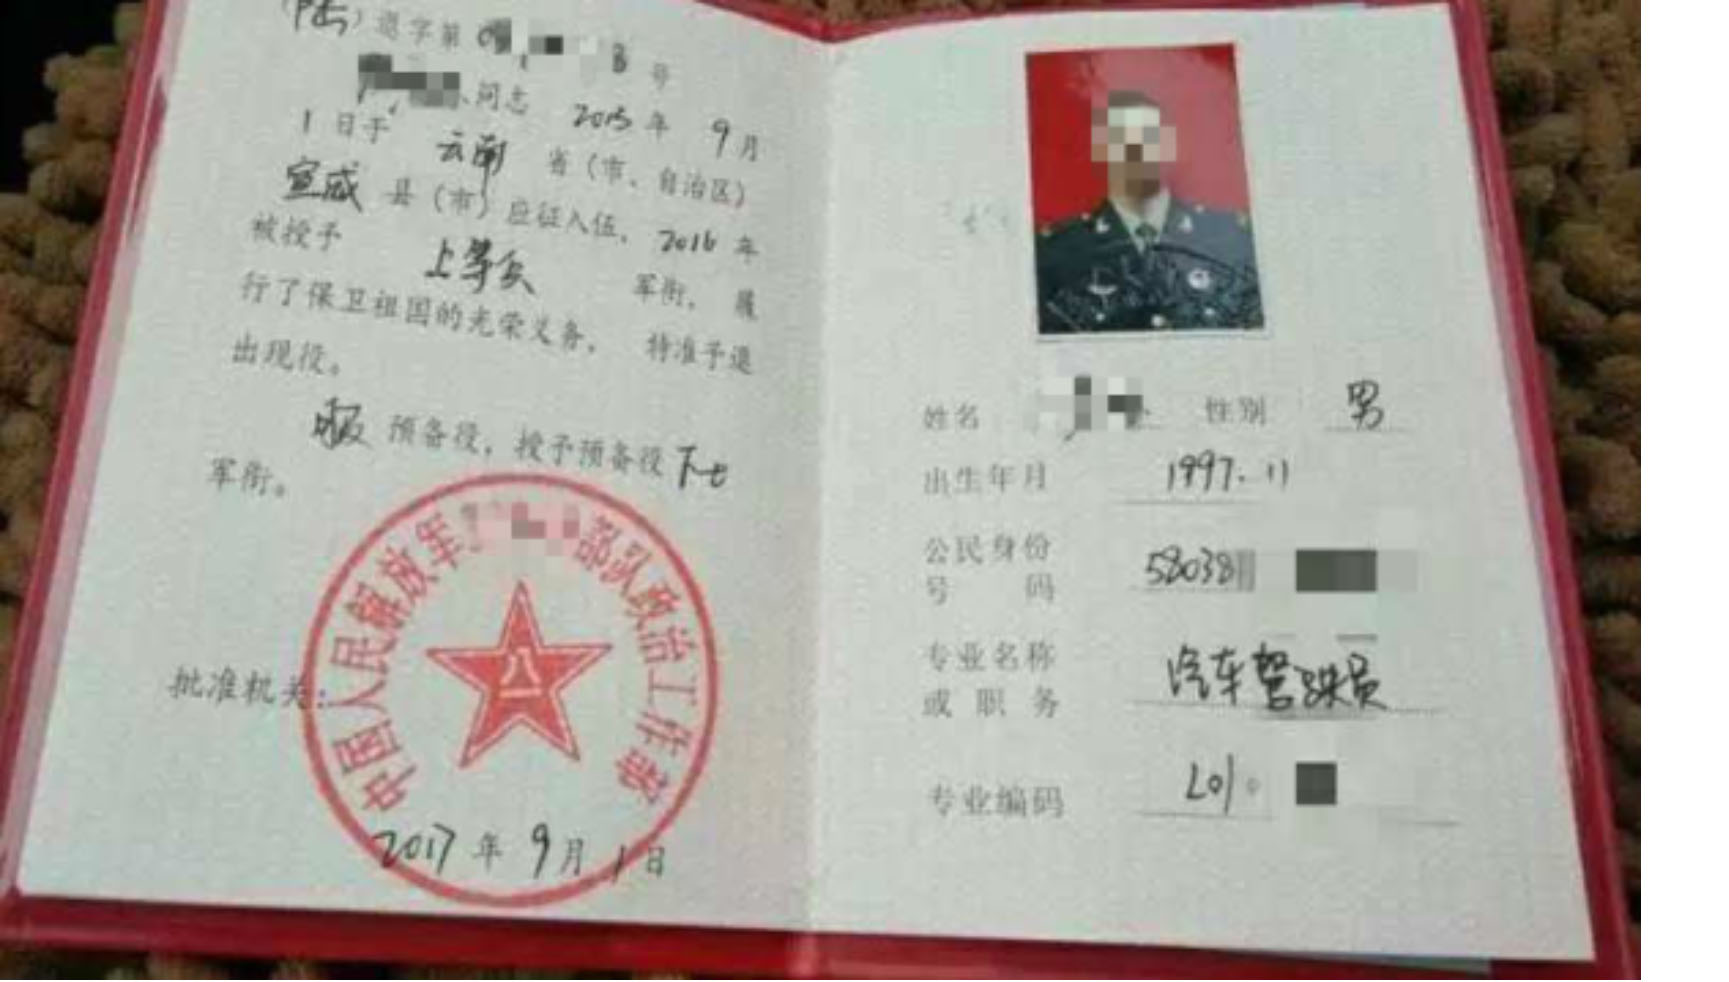 （陆）退字第 号
同志 2015年 9月
1日于 云南 省（市、自治区）
宣威 县（市）应征入伍， 2016年
被授予 上等兵 军衔， 履
行了保卫祖国的光荣义务， 特准予退
出现役。
服 预备役，授予预备役下士
军衔。
中国人民解放军 部队政治工作部
八一
批准机关：
2017年 9月 1日
姓名 性别 男
出生年月 1997.11
公民身份 58038
号 码
专业名称 汽车驾驶员
或 职 务
专业编码 L010